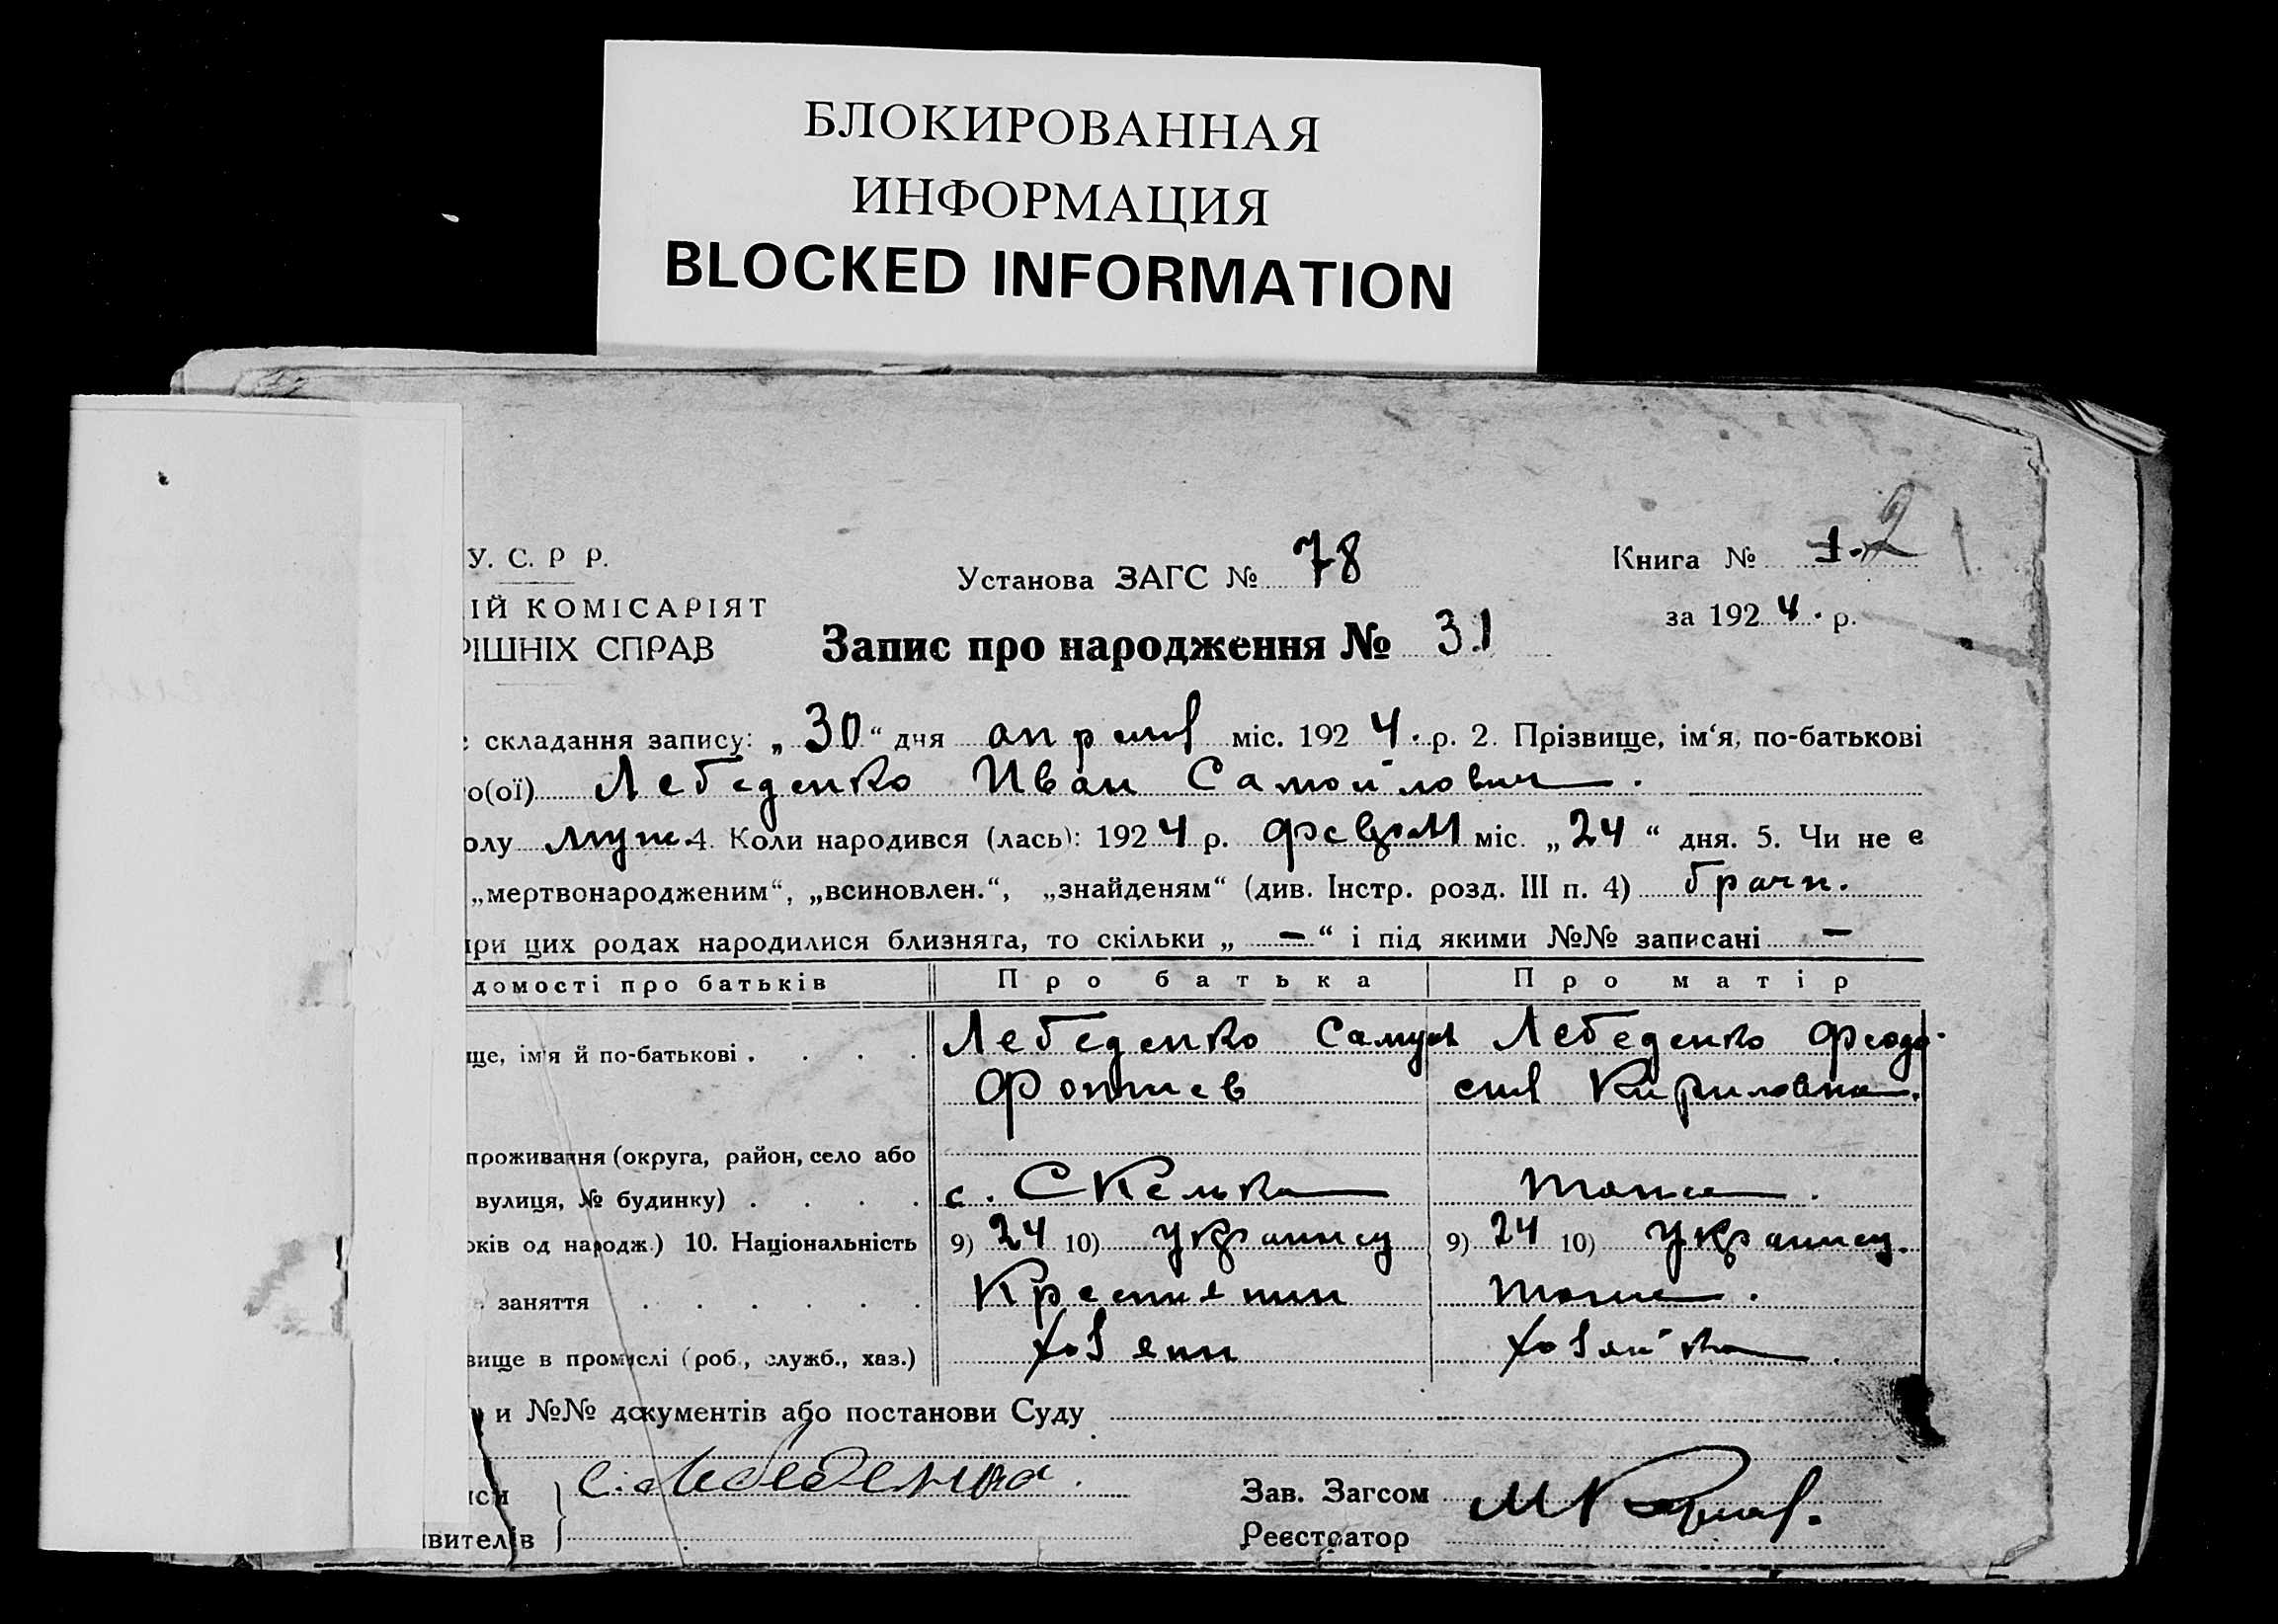 БЛОКИРОВАННАЯ
ИНФОРМАЦИЯ
BLOCKED INFORMATION
У. С. Р Р.
ІЙ КОМІСАРІЯТ
РІШНІХ СПРАВ
Установа ЗАГС № 78
Книга № 1. 2
за 1924. р.
Запис про народження № 31
складання запису: „ 30 “ дня апреля міс. 1924. р. 2. Прізвище, ім‘я, по-батькові
о(ої) Лебеденко Иван Самойлович.
олу муж. 4. Коли народився (лась): 1924 р. міс. „ 24 “ дня. 5. Чи не є
„мертвонародженим“, „всиновлен.“, „знайденям“ (див. Інстр. розд. III п. 4) брачн.
при цих родах народилися близнята, то скільки „ — “ і під якими №№ записані —
домості про батьків Про батька Про матір
ще, ім'я й по-батькові . . . . Лебеденко Самуил Лебеденко Феодо-
Фотиев сия Кириловна.
проживання (округа, район, село або
вулиця, № будинку) . . . . с. Скелька тоже.
років од народж.) 10. Національність 9) 24 10) украинец 9) 24 10) украинц.
заняття . . . . . . Крестянин тоже.
вище в промислі (роб., служб., хаз.) хозяин хозяйка.
и №№ документів або постанови Суду
иси С. Лебеденко.
вителів
Зав. Загсом
Реєстратор